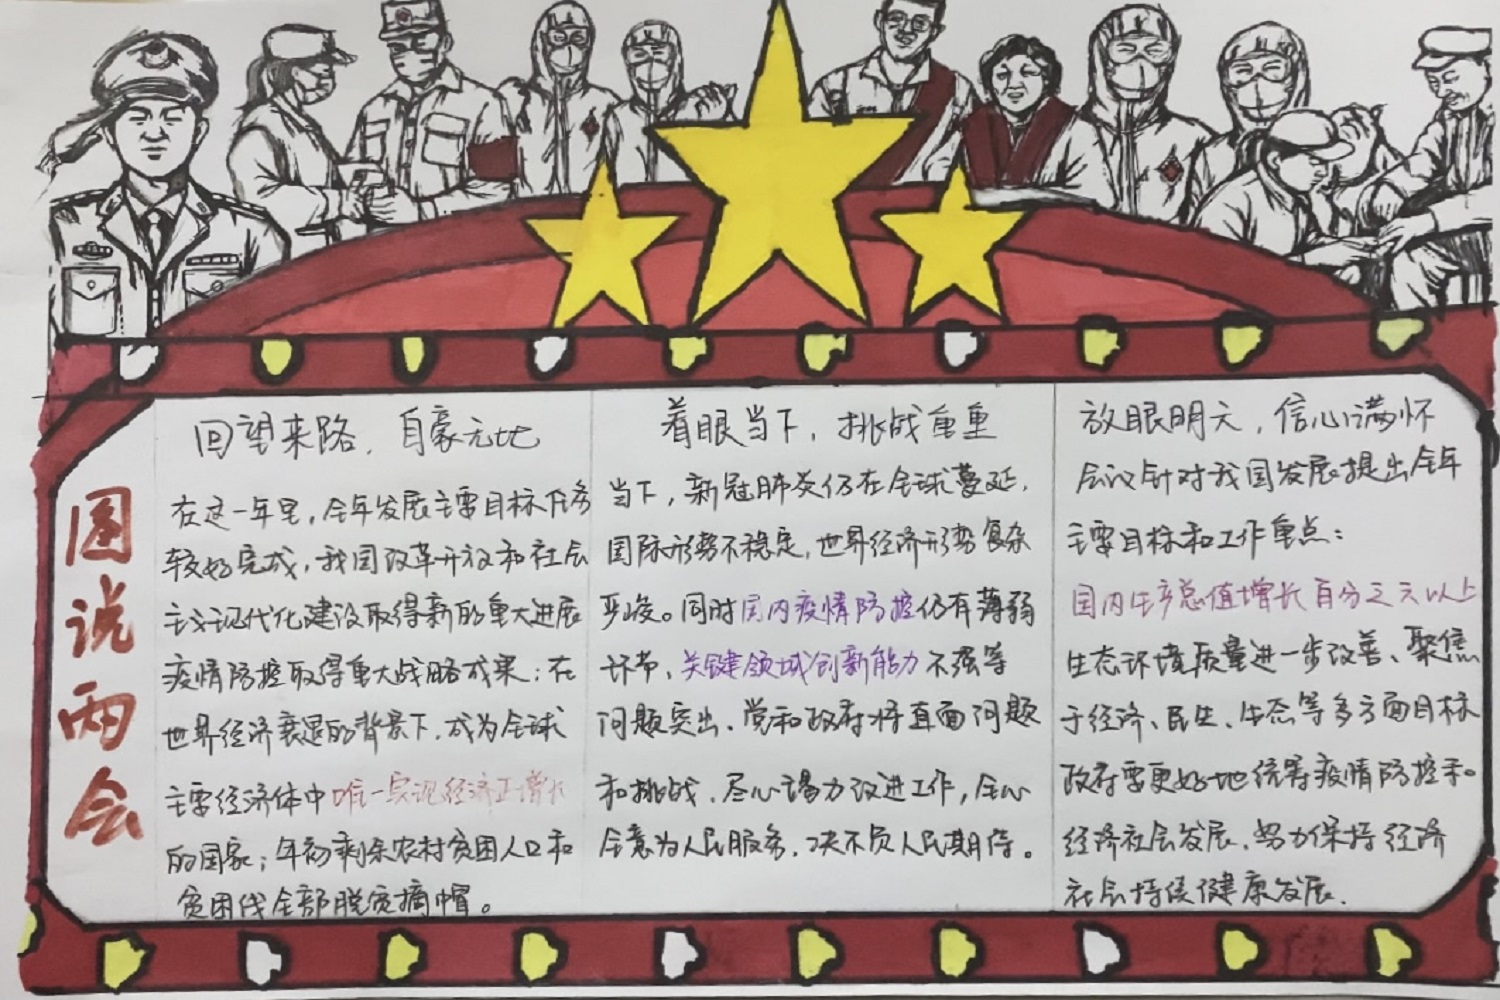 圆说两会
回望来路，自豪无比
在这一年里，全年发展主要目标任务
较好完成，我国改革开放和社会
主义现代化建设取得新的重大进展
疫情防控取得重大战略成果；在
世界经济衰退的背景下，成为全球
主要经济体中唯一实现经济正增长
的国家；年初剩余农村贫困人口和
贫困线全部脱贫摘帽。
着眼当下，挑战重重
当下，新冠肺炎仍在全球蔓延，
国际形势不稳定，世界经济形势复杂
严峻。同时国内疫情防控仍有薄弱
环节，关键领域创新能力不强等
问题突出、党和政府将直面问题
和挑战，尽心竭力改进工作，全心
全意为人民服务，决不负人民期待。
放眼明天，信心满怀
会议针对我国发展提出全年
主要目标和工作重点：
国内生产总值增长百分之六以上
生态环境质量进一步改善、聚焦
于经济、民生、生态等多方面目标
政府要更好地统筹疫情防控和
经济社会发展，努力保持经济
社会持续健康发展.